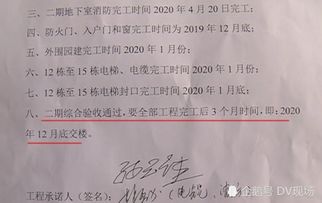 三、二期地下室消防完工时间 2020 年 4 月 20 日完工；
四、防火门、入户门和窗完工时间为 2019 年 12 月底；
五、外围园建完工时间 2020 年 1 月份；
六、12 栋至 15 栋电梯、电缆完工时间 2020 年 1 月份；
七、12 栋至 15 栋电梯封口完工时间 2020 年 1 月份；
八、二期综合验收通过，要全部工程完工后 3 个月时间，即：2020
年 12 月底交楼。
工程承诺人（签名）：
企鹅号 DV现场